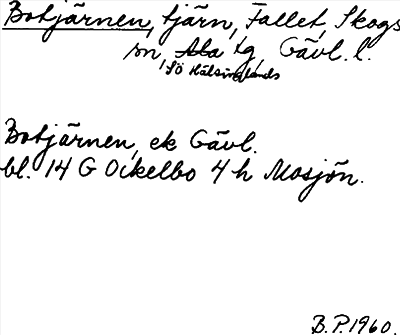 Botjärnen, tjärn, Fallet, Skogs
sn, Ala tg, Gävl. l.
Sö Hälsinglands
Botjärnen, ek Gävl.
bl. 14 G Ockelbo 4 h Mosjön.
B.P. 1960.